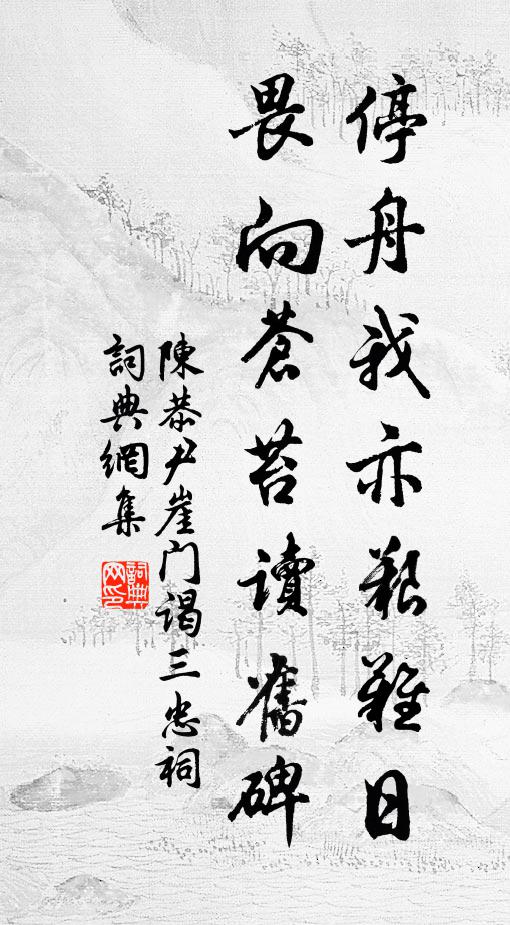 停舟我亦艱難日
畏向蒼苔讀舊碑
陳恭尹崖门謁三忠祠
詞典網集
詞典网印